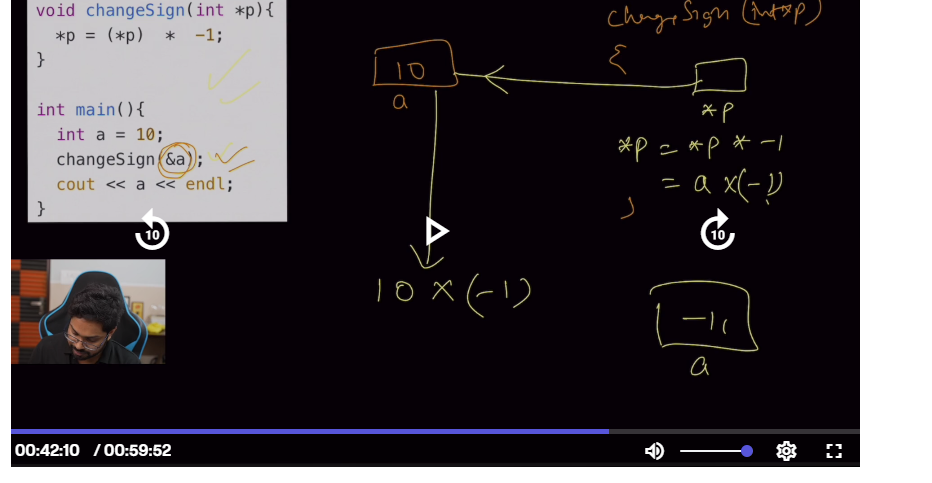 void changeSign(int *p){
*p = (*p) * -1;
}
int main(){
int a = 10;
changeSign(&a);
cout << a << endl;
}
changeSign (int *p)
{
10
a
*p
*p = *p * -1
= a x(-1)
}
10
10
10 x (-1)
a
00:42:10 / 00:59:52